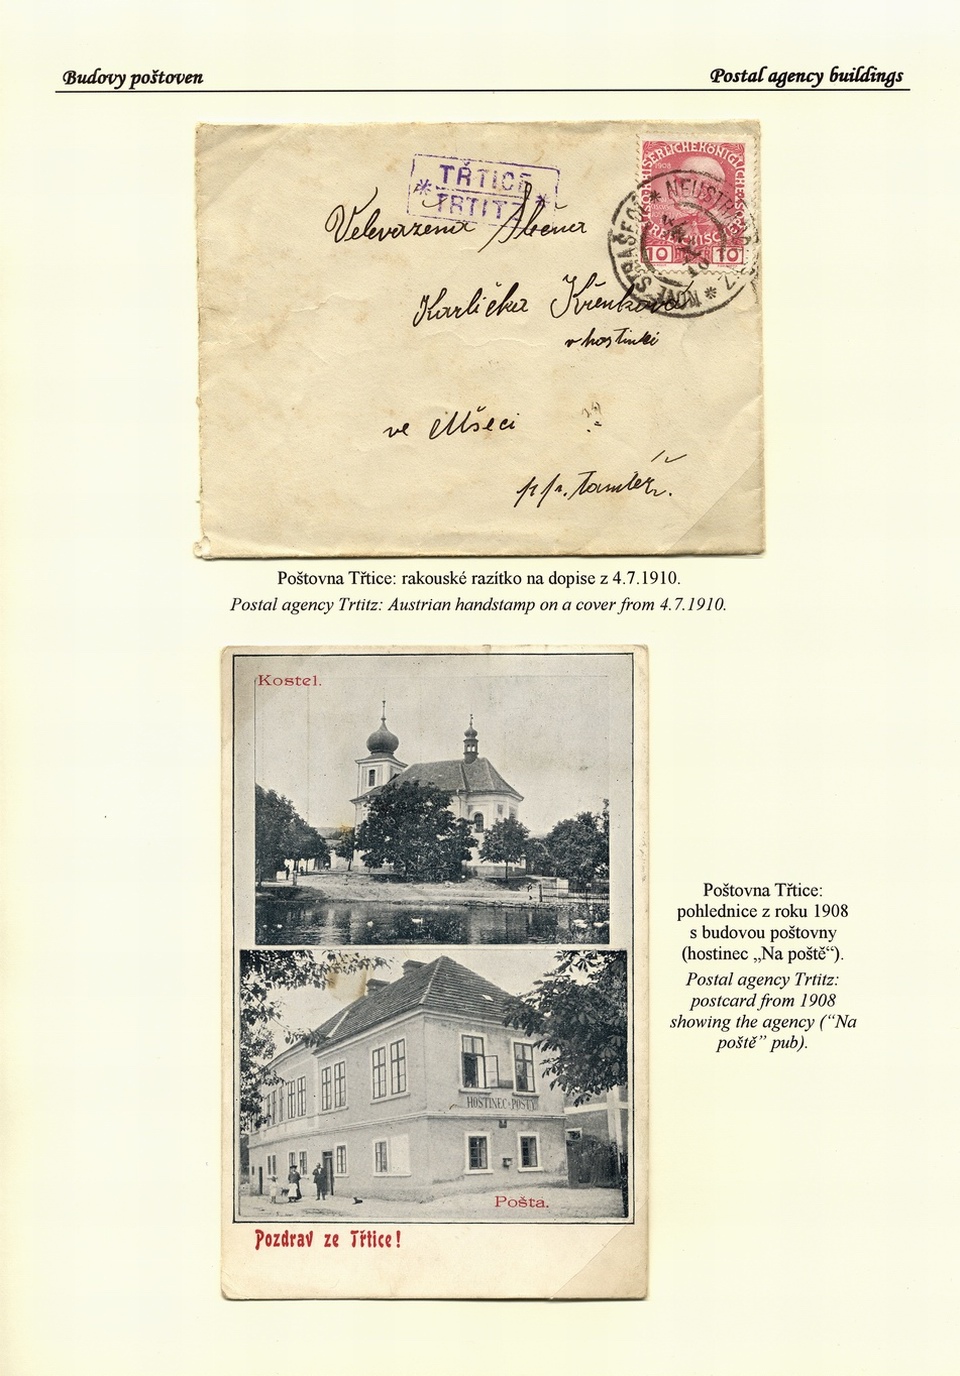 Budovy poštoven
Postal agency buildings
TŘTICE
* TRTITZ *
1908
10 10
NEUSTRASCHITZ * NOVÉ STRAŠECÍ *
Velevážená Slečna
Karlička Křenková
v hostinci
ve Mšeci
Poštovna Třtice: rakouské razítko na dopise z 4.7.1910.
Postal agency Trtitz: Austrian handstamp on a cover from 4.7.1910.
Kostel.
HOSTINEC
Pošta.
Pozdrav ze Třtice!
Poštovna Třtice:
pohlednice z roku 1908
s budovou poštovny
(hostinec „Na poště“).
Postal agency Trtitz:
postcard from 1908
showing the agency (“Na
poště” pub).